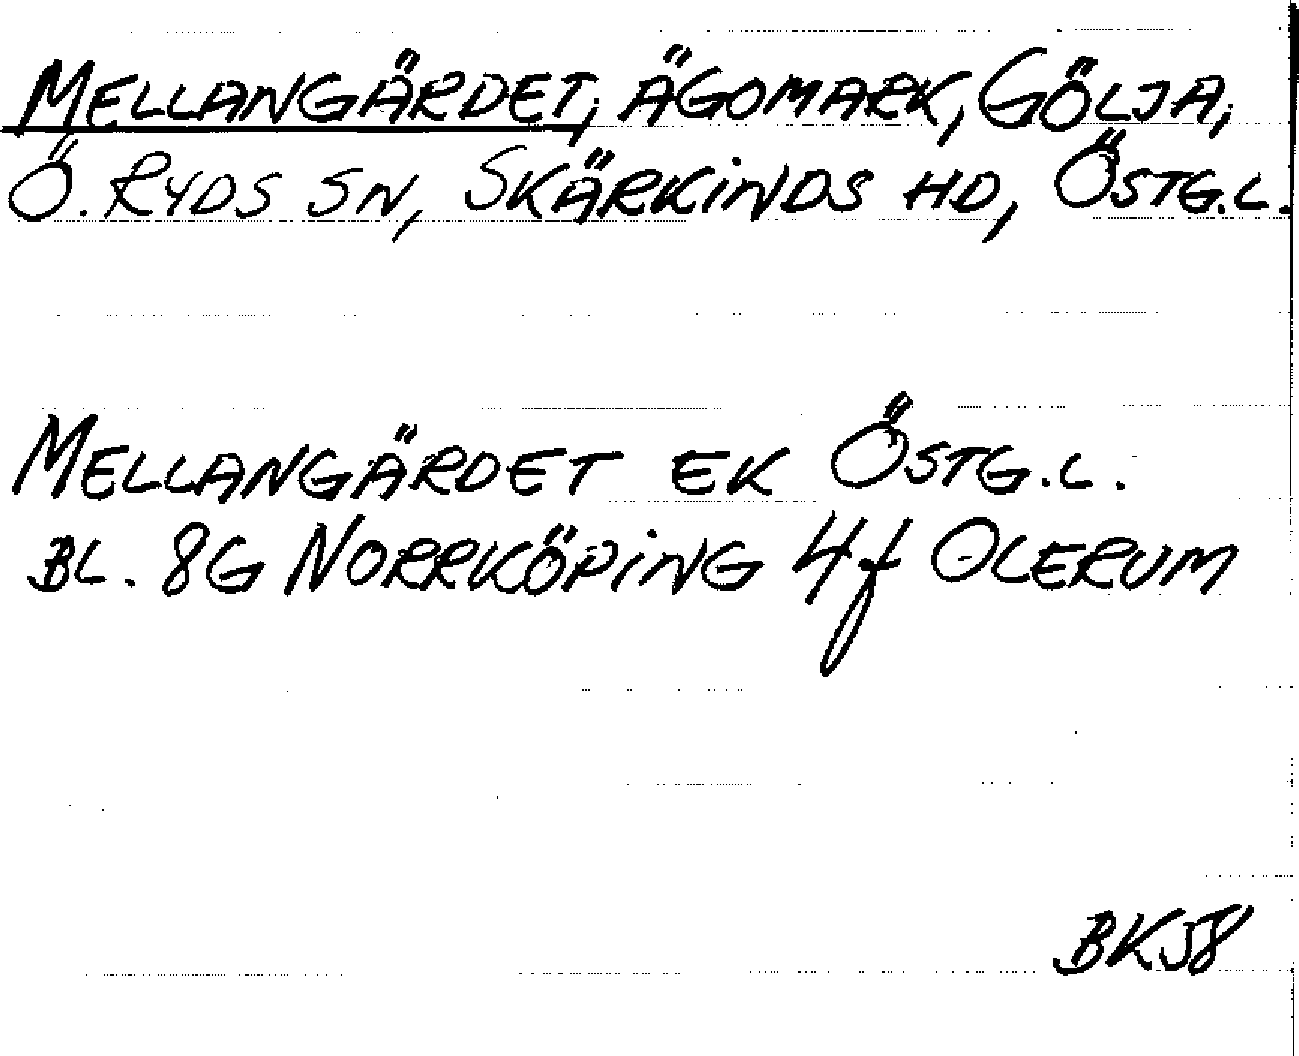 MELLANGÄRDET, ÄGOMARK, GÖLJA,
Ö. RYDS SN, SKÄRKINDS HD, ÖSTG.L.
MELLANGÄRDET EK ÖSTG.L.
BL. 8G NORRKÖPING 4f OLERUM
BKJ8